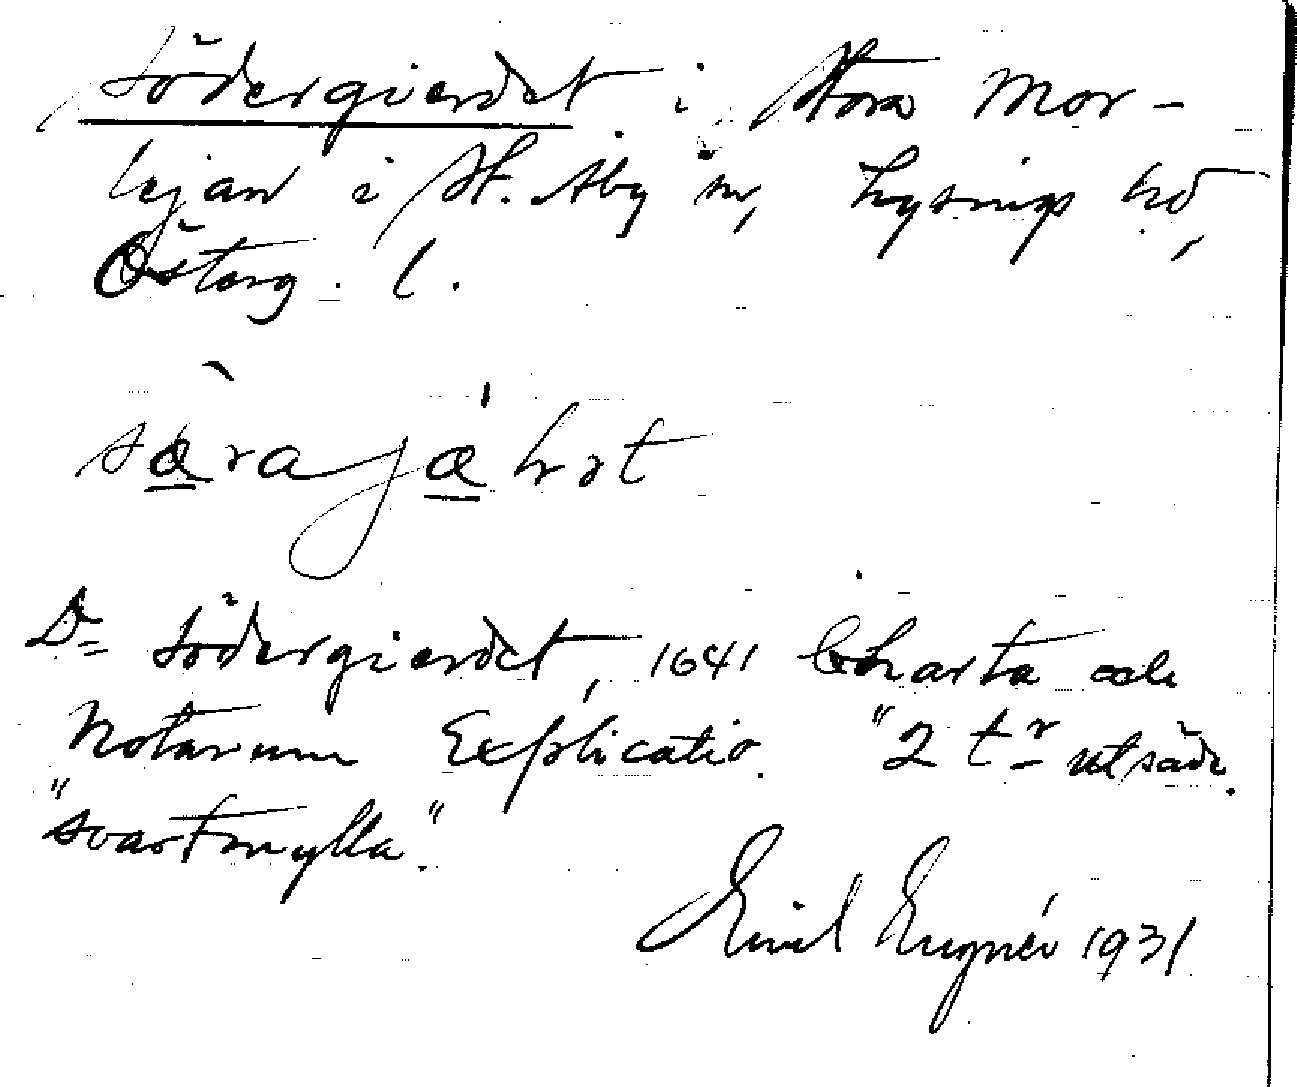 Södergierdet i Stora Mor-
lejan i St. Åby sn, Lysings hd,
Österg. l.
særajæhrt
D:= Södergierdet, 1641 Charta och
Notarum Explicatio. "2 t:r utsäde.
"svartmylla".
Emil 1931